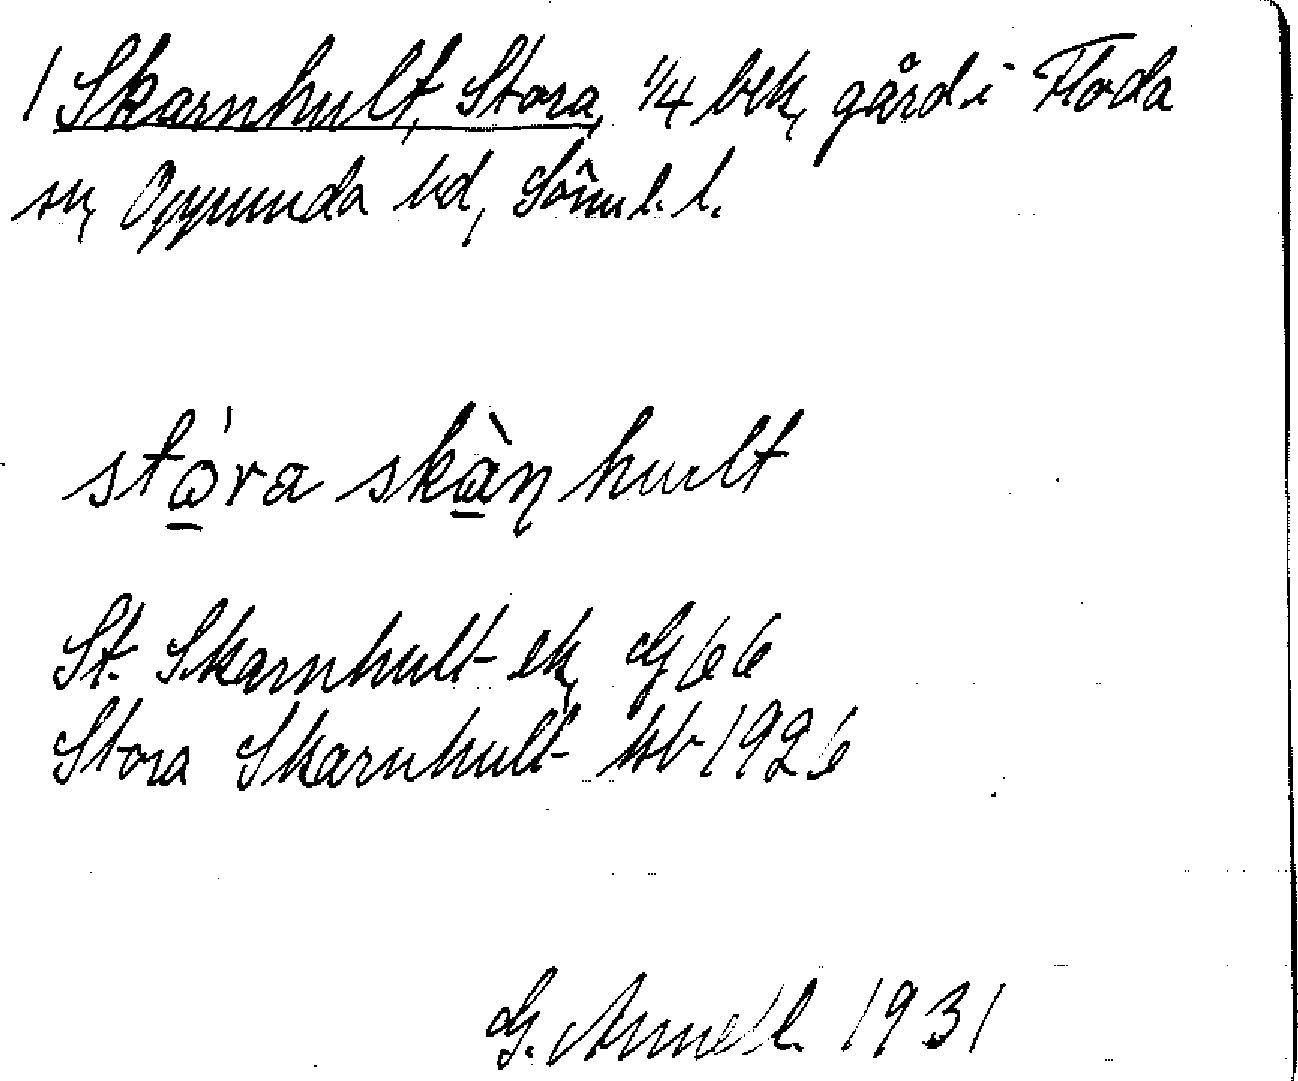 1 Skarnhult, Stora, 1/4 bek, gård i Floda
sn, Oppunda hd, Söml. l.
stó̲ra skà̲ɳhult
St. Skarnhult ek, G 66
Stora Skarnhult kb 1926
G. Annell. 1931